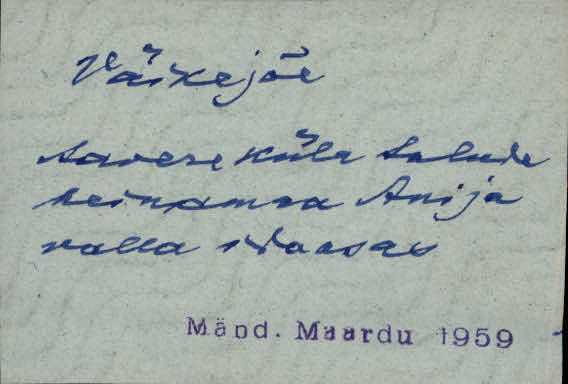 Väikejõe
Aavere küla Salude
heinamaa Anija
valla idaosas
Mänd. Maardu 1959